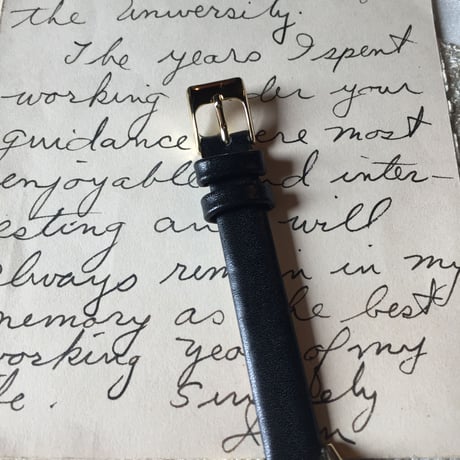 the University.
The years I spent
working der your
guidance ere most
enjoyable nd inter-
esting an will
always rem n in my
memory as he best
working yea of my
fe. Sin ely